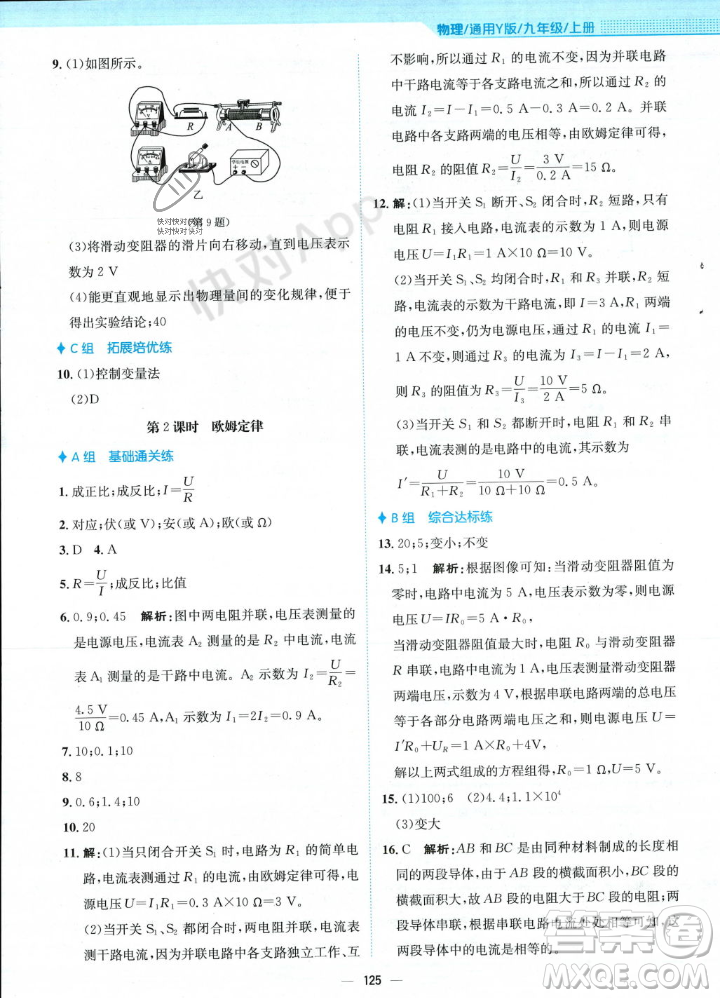 物理/通用Y版/九年级/上册
9. (1)如图所示。
R
A
B
乙
(第9题)
快对快对快对
快对快对
快对App
(3)将滑动变阻器的滑片向右移动,直到电压表示
数为 2 V
(4)能更直观地显示出物理量间的变化规律,便于
得出实验结论;40
C组 拓展培优练
10. (1)控制变量法
(2)D
第2课时 欧姆定律
A组 基础通关练
1. 成正比;成反比;I=U/R
2. 对应;伏(或 V);安(或 A);欧(或 Ω)
3. D 4. A
5. R=U/I;成反比;比值
6. 0.9;0.45 解析:图中两电阻并联,电压表示数
是电源电压,电流表 A₂ 测量 R₂ 中电流,电流
表 A₁ 测量的是干路中电流。A₂ 示数为 I₂=U/R₂=
4.5 V/10 Ω=0.45 A,A₁ 示数为 I₁=2I₂=0.9 A。
7. 10;0.1;10
8. 8
9. 0.6;1.4;10
10. 20
11. 解:(1)当只闭合开关 S₁ 时,电路为 R₁ 的简单电
路,电流表测量通过 R₁ 的电流,电源电压 U=
U₁=I₁R₁=0.3 A×10 Ω=3 V。
(2)当 S₁、S₂ 都闭合时,两电阻并联,电流表
测干路电流,因并联电路中各支路独立工作、互
不影响,所以通过 R₁ 的电流不变,因并联电路
中干路电流等于各支路电流之和,所以通过 R₂ 的
电流 I₂=I-I₁=0.5 A-0.3 A=0.2 A。因并联
电路中各支路两端的电压相等,由欧姆定律可得,
电阻 R₂ 的阻值 R₂=U/I₂=3 V/0.2 A=15 Ω。
12. 解:(1)当开关 S₁ 断开、S₂ 闭合时,R₂ 短路,只有
电阻 R₁ 接入电路,电流表的示数为 1 A,电源电
压 U=I₁R₁=1 A×10 Ω=10 V。
(2)当开关 S₁、S₂ 均闭合时,R₂ 短路,电阻 R₁、
R₃ 并联,电流表的示数为干路电流,即 3 A,R₁ 两端
的电压不变,仍为电源电压,通过 R₁ 的电流不变,为
1 A,则通过 R₃ 的电流 I₃=I-I₁=3 A-1 A=2 A,
则 R₃ 的阻值为 R₃=U/I₃=10 V/2 A=5 Ω。
(3)当开关 S₁ 和 S₂ 都断开时,电阻 R₁、R₂ 串
联,电流表测的是电路中的电流,其示数为
I′=U/(R₁+R₂)=10 V/(10 Ω+10 Ω)=0.5 A。
B组 综合达标练
13. 20;5;变小;不变
14. 5;1 解析:根据图像可知:当滑动变阻器阻值为
零时,电路中的电流为 5 A,电压表示数为零。
电压 U=IR₀=5 A·R₀。
当滑动变阻器阻值最大时,电阻 R₀ 与滑动变阻器
R 串联,电路中电流为 1 A,电压表测量滑动变阻器
两端电压,为 4 V,根据串联电路两端的总电压
等于各部分电路两端电压之和,电源电压 U=
I′R₀+U₁=1 A·R₀+4 V。
解以上两式组成的方程组得,R₀=1 Ω,U=5 V。
15. (1)100;6 (2)4.4;1.1×10⁴
(3)变大
16. C 解析:AB 和 BC 是由同种材料制成的长度相
同的两段导体,由于 AB 段的横截面积小,BC 段的
横截面积大,故 AB 段的电阻大于 BC 段的电阻;两段
导体串联,根据串联电路电流处处相等可知,这
两段导体中的电流是相等的。
125
答案圈
MXQE.COM